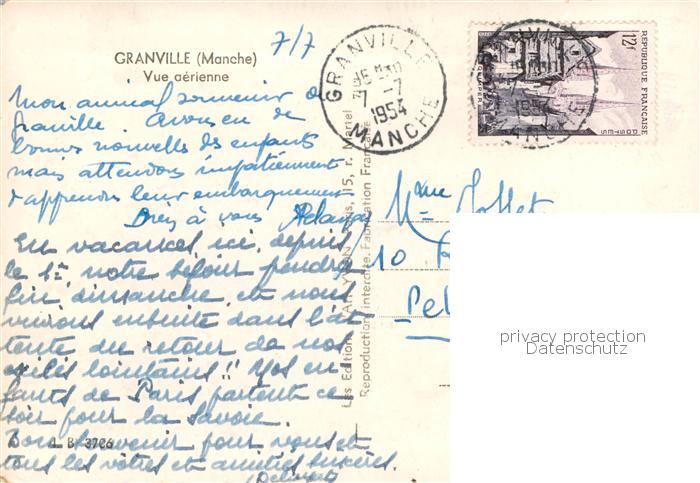 7/7
GRANVILLE (Manche)
Vue aérienne
GRANVILLE
15 H30
7 -7
1954
MANCHE
12f
REPUBLIQUE FRANÇAISE
POSTES
QUIMPER
Mon amical souvenir de
Granville. Avons eu de
bonnes nouvelles des enfants
mais attendons impatiemment
d'apprendre leur embarquement
Bien à vous
En vacances ici depuis
le 1er notre séjour prendra
fin dimanche et nous
vivrons ensuite dans l'at-
tente du retour de nos
exilés lointains !! Nos en
fants de Paris partent ce
soir pour la Savoie.
Bon souvenir pour vous et
tous les vôtres et amitiés sincères.
L B 3706
Les Éditions d'Art YVON, Paris, 15, r. Martel
Reproduction interdite. Fabrication Française
Mme
10
Pel
privacy protection
Datenschutz